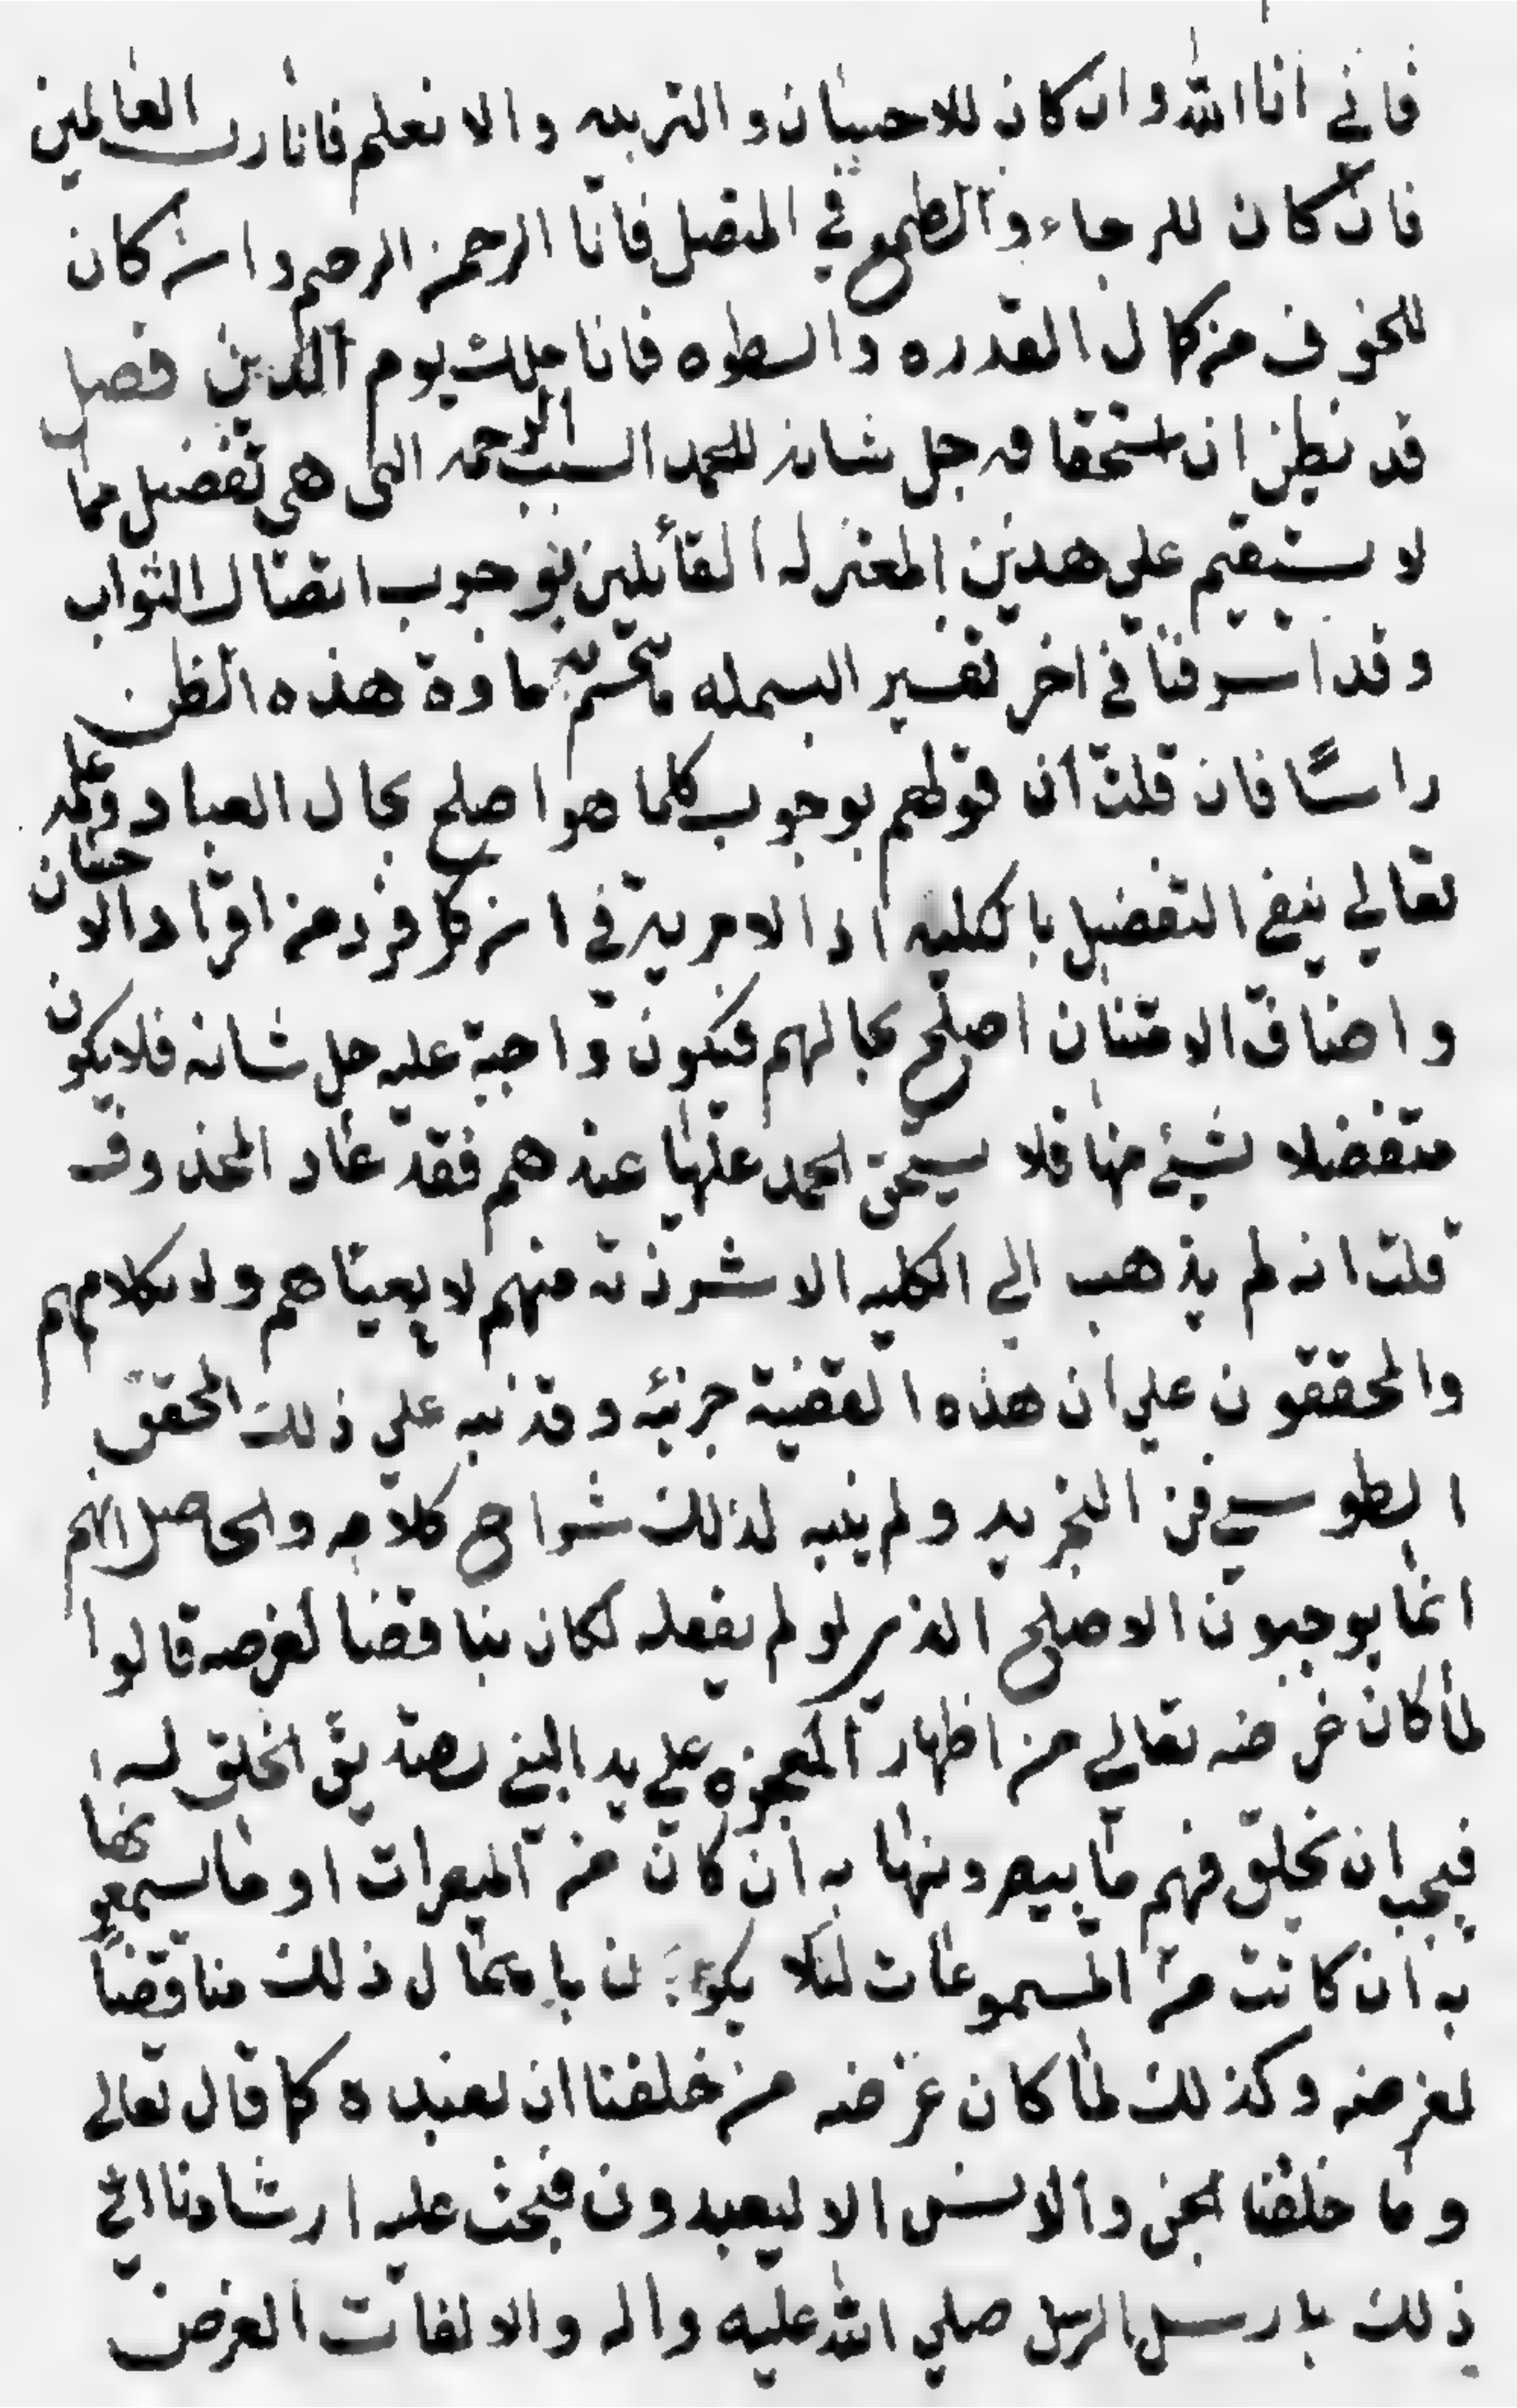 فاني انا الله وان كان للاحسان والتربيه والانعلم فانا رب العالمين
فان كان للرجاء والطمع في المتصل فانا الرحمن الرحيم وان كان
للخوف من كمال القدره والسطوه فانا ملك يوم الدين فصل
قد نظن ان استحقاقه جل شانه للحمد السبب الرحمه التى هى تفضيل مما
لا يستقيم على هدين المعتزله القائلين بوجوب ايصال الثواب
وقد اشرفنا في اخر تفسير البسمله ما يحسم به مادة هذه الظن
راسًا فان قلت ان قولهم بوجوب كلما هو اصلح بحال العباد وعليه
تعالي ينفي التفضيل بالكليه اذ الامرية في ان كل فرد من افراد الاحسان
واضاف الامتنان اصلح بحالهم فتكون واجبة عليه جل شانه فلا يكون
متفضلا لشيئ منها فلا يستحق الحمد عليها عندهم فقد عاد المحذوف
قلت انه لم يذهب الي الكليه الا شرذنه منهم لا يعبئا هم ولا بكلامهم
والمحققون علي ان هذه القضية جزئيه وقد نبه علي ذلك المحقق
الطوسي في التجريد ولم ينبه لذلك شراح كلامه والحاصل انهم
انما يوجبون الاصلح الذي لو لم يفعله لكان مناقضا لغرضه قالوا
لما كان غرضه تعالي من اظهار المعجزه علي يد النبي تصديق الخلق له
فيجب ان يخلق فيهم ما يبصرونها به ان كان من المبصرات او ما يسمعونها
به ان كانت من المسموعات لئلا يكون باهمال ذلك مناقضاً
لغرضه وكذلك لما كان غرضه من خلقنا ان نعبده كما قال تعالى
وما خلقنا الجن والانس الا ليعبدون فيجب عليه ارشادنا الي
ذلك بارسل الرسل صلي الله عليه واله والا لفات الغرض